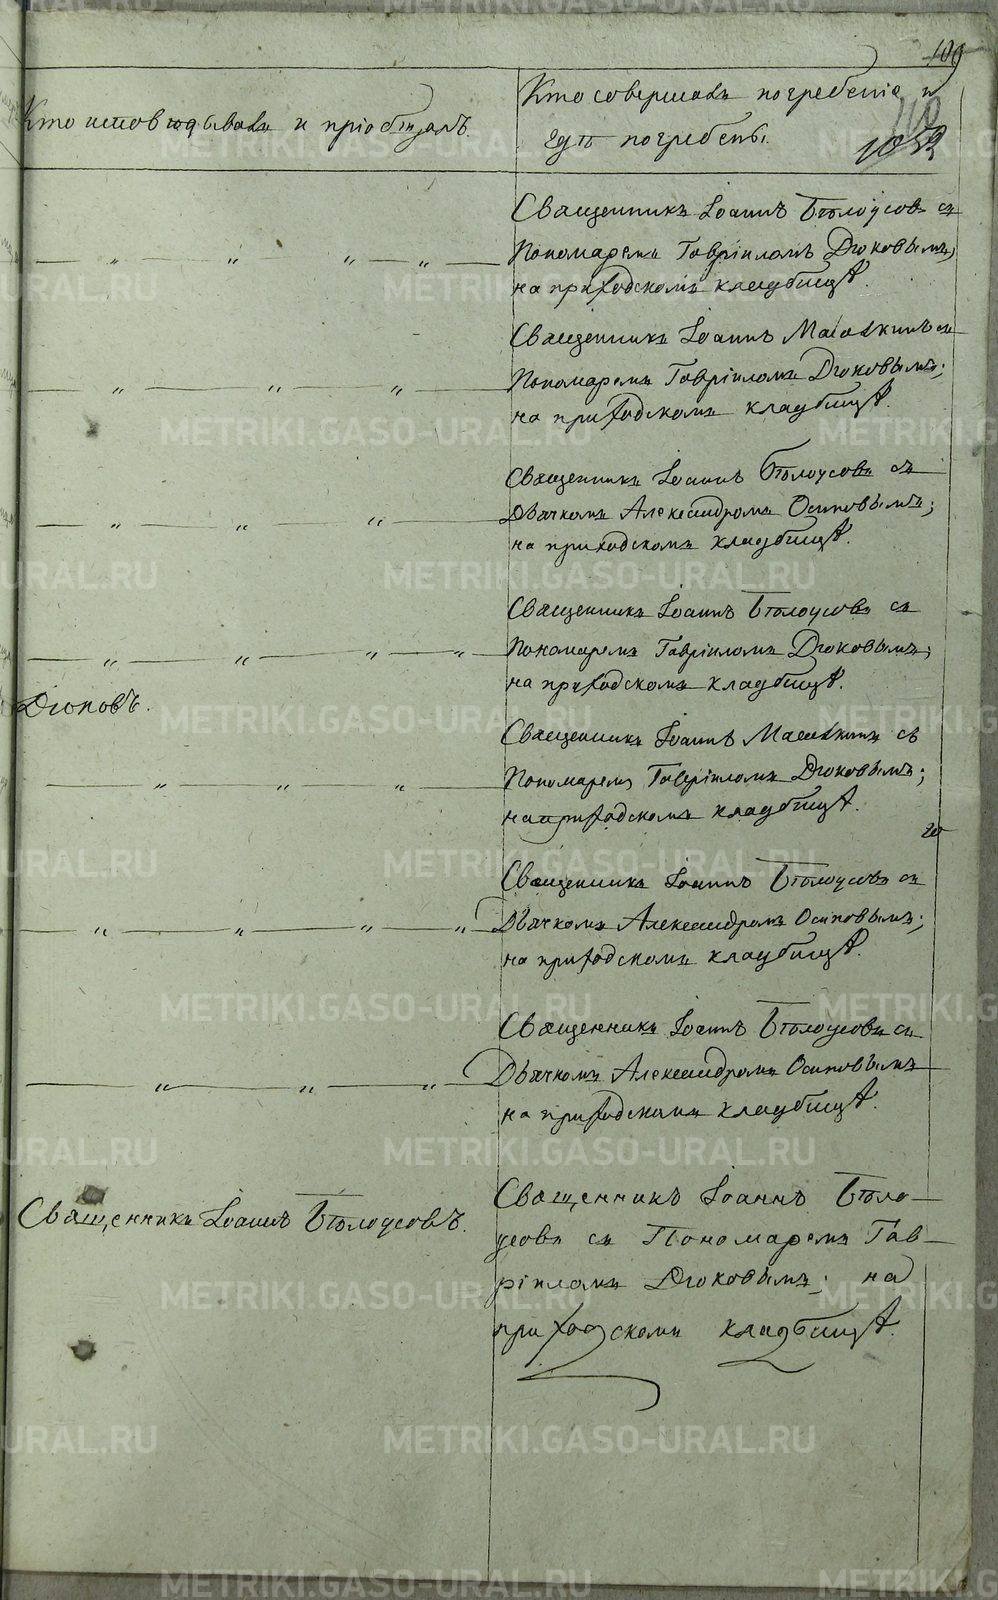 109
110
Кто исповѣдывалъ и пріобщалъ.
Кто совершалъ погребеніе и
гдѣ погребены.
Священникъ Іоаннъ Бѣлоусовъ съ
Пономаремъ Гавріиломъ Дюковымъ;
на приходскомъ кладбищѣ.
Священникъ Іоаннъ съ
Пономаремъ Гавріиломъ Дюковымъ;
на приходскомъ кладбищѣ.
Священникъ Іоаннъ Бѣлоусовъ съ
Дьячкомъ Александромъ Осиповымъ;
на приходскомъ кладбищѣ.
Священникъ Іоаннъ Бѣлоусовъ съ
Пономаремъ Гавріиломъ Дюковымъ;
на приходскомъ кладбищѣ.
Священникъ Іоаннъ съ
Пономаремъ Гавріиломъ Дюковымъ;
на приходскомъ кладбищѣ.
Священникъ Іоаннъ Бѣлоусовъ съ
Дьячкомъ Александромъ Осиповымъ;
на приходскомъ кладбищѣ.
Священникъ Іоаннъ Бѣлоусовъ съ
Дьячкомъ Александромъ Осиповымъ
на приходскомъ кладбищѣ.
Священникъ Іоаннъ Бѣлоусовъ.
Священникъ Іоаннъ Бѣло-
усовъ съ Пономаремъ Гав-
ріиломъ Дюковымъ; на
приходскомъ кладбищѣ.
METRIKI.GASO-URAL.RU